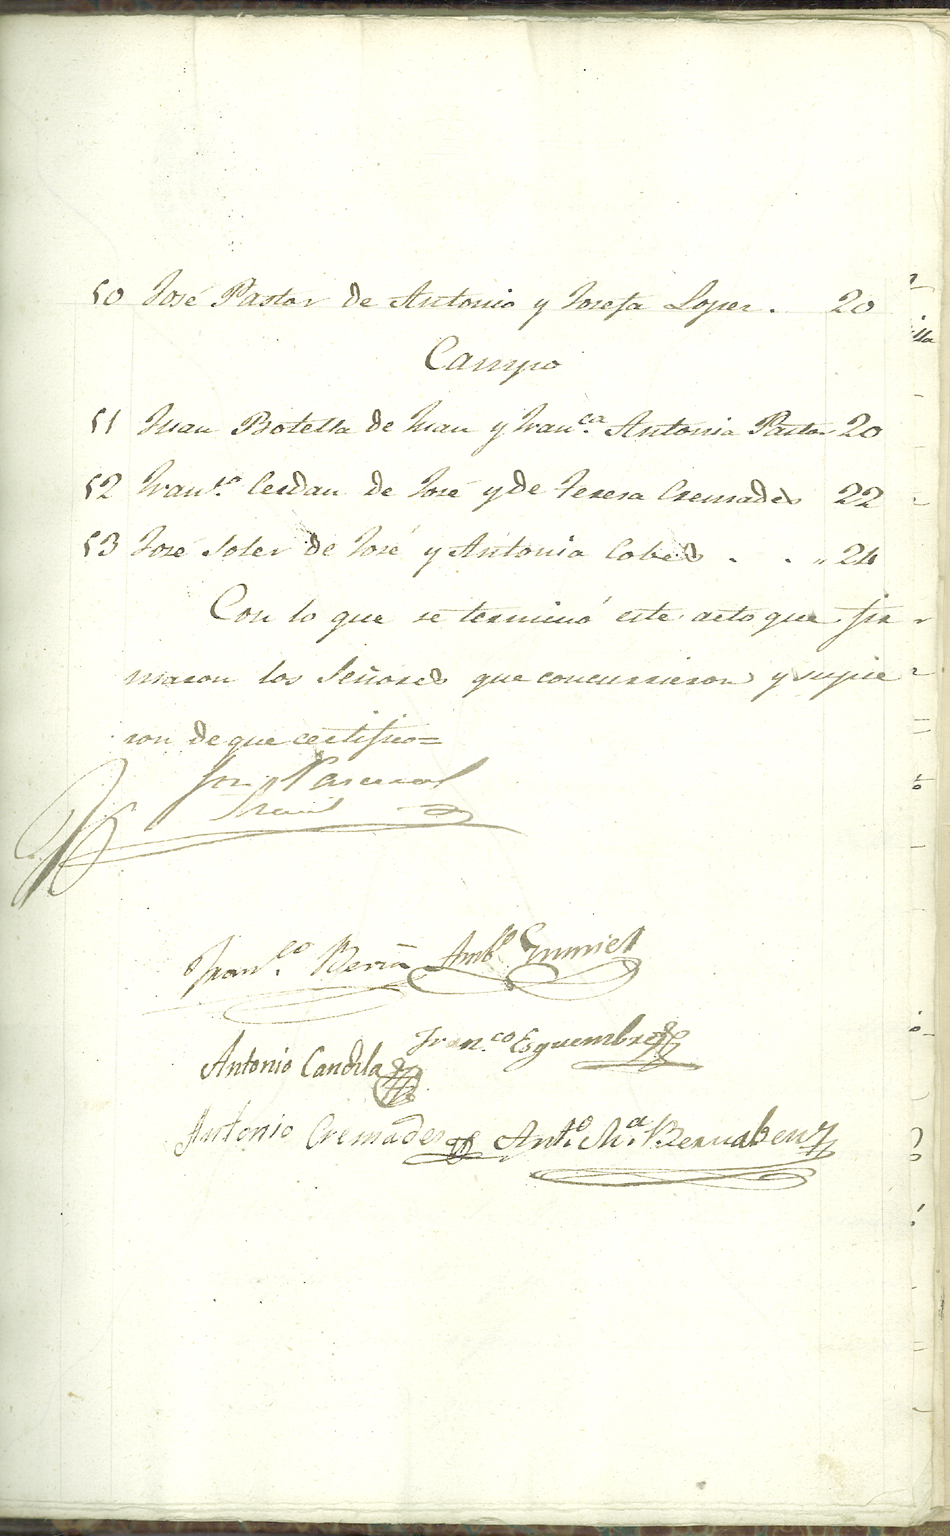 50 José Pastor de Antonio y Josefa Lopez. 20
Campo
51 Juan Botella de Juan y Fran.ca Antonia Pastor 20
52 Fran.co Cerdan de José y de Teresa Cremades 22
53 José Soler de José y Antonia Cobes . . " 24
Con lo que se terminó este acto que fir
maron los Señores que concurrieron y supie
ron de que certifico=
José Pascual
Fran.co Berna Amb.o Gumiel
Fran.co Esquembre
Antonio Candela
Antonio Cremades Ant.o M.a Bernabeu